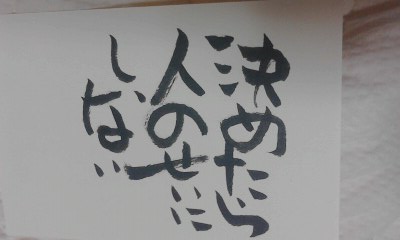 決めたら
人のせいに
しない